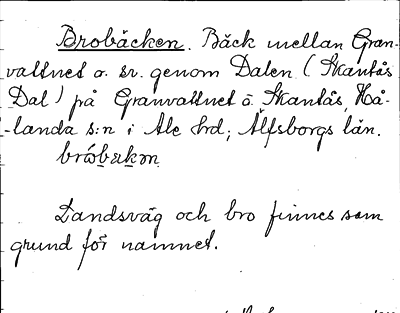 Brobäcken. Bäck mellan Gran-
vattnet o. sv. genom Dalen (Skantås
Dal) på Granvattnet o. Skantås, Hå-
-landa s:n i Ale hrd; Älfsborgs län.
bróbækən

Landsväg och bro finnes som
grund för namnet.